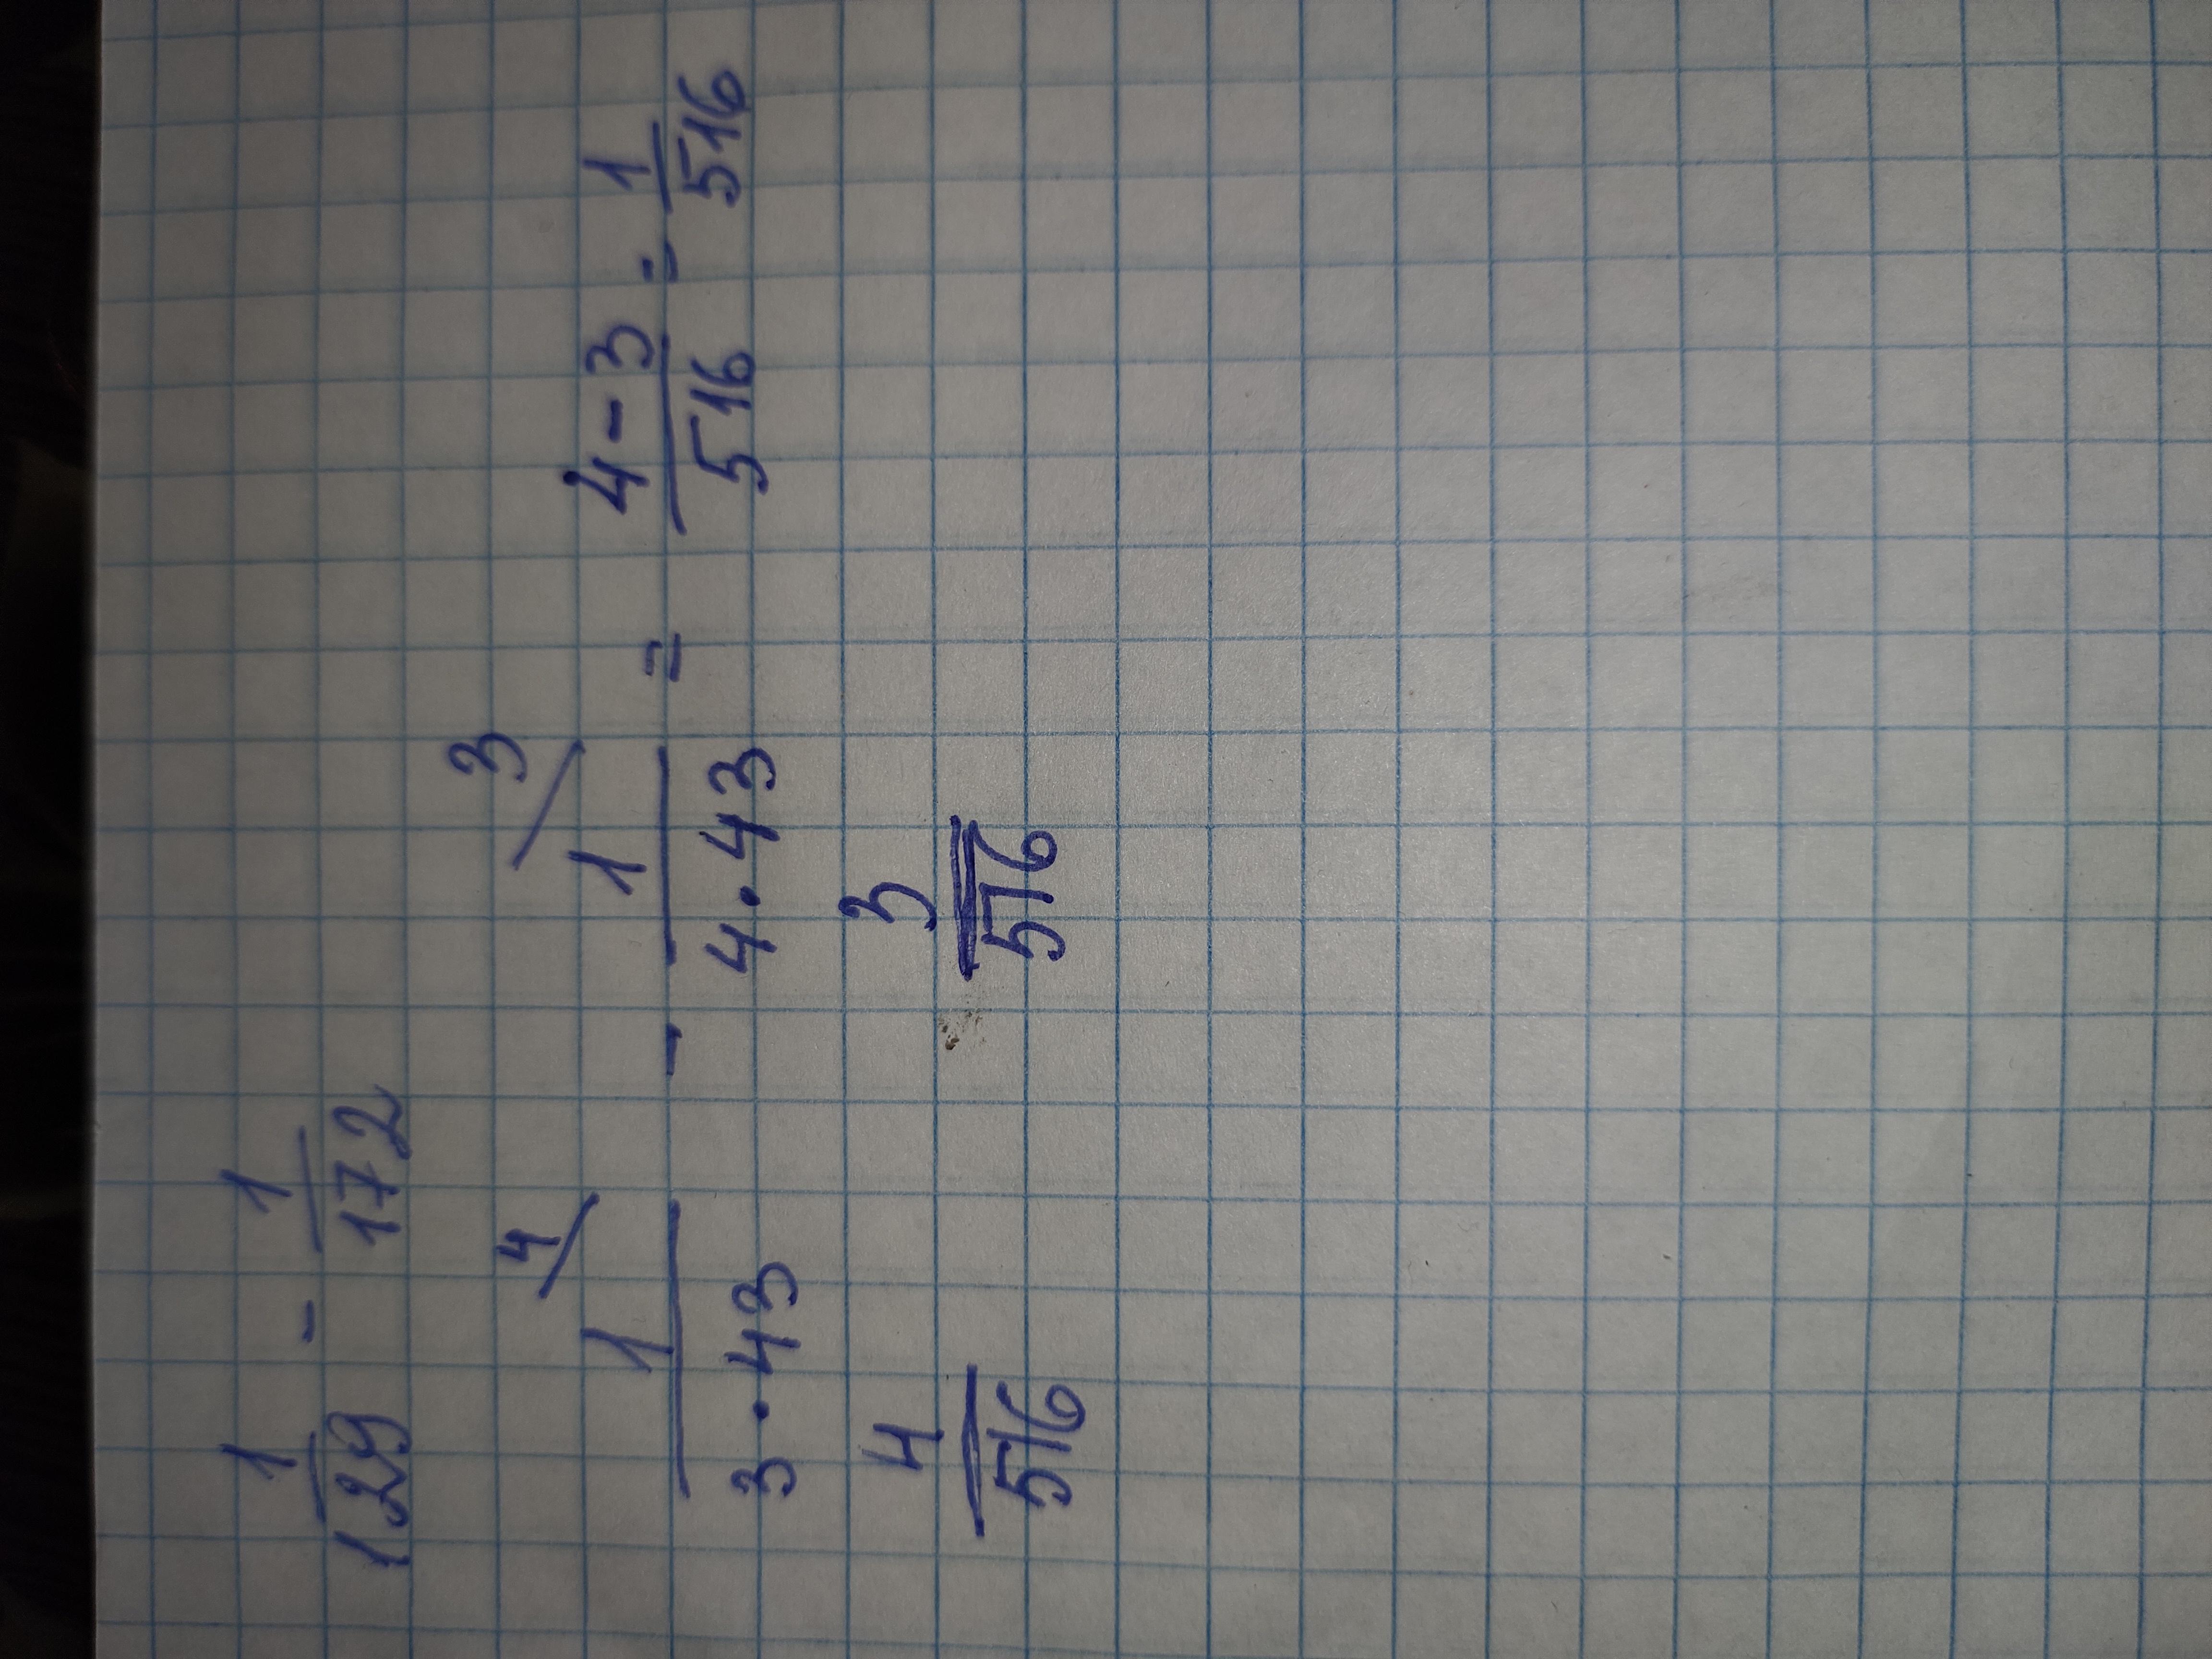 1/129 - 1/172
1/(3·43) \4 - 1/(4·43) \3 = (4-3)/516 = 1/516
4/516 3/516